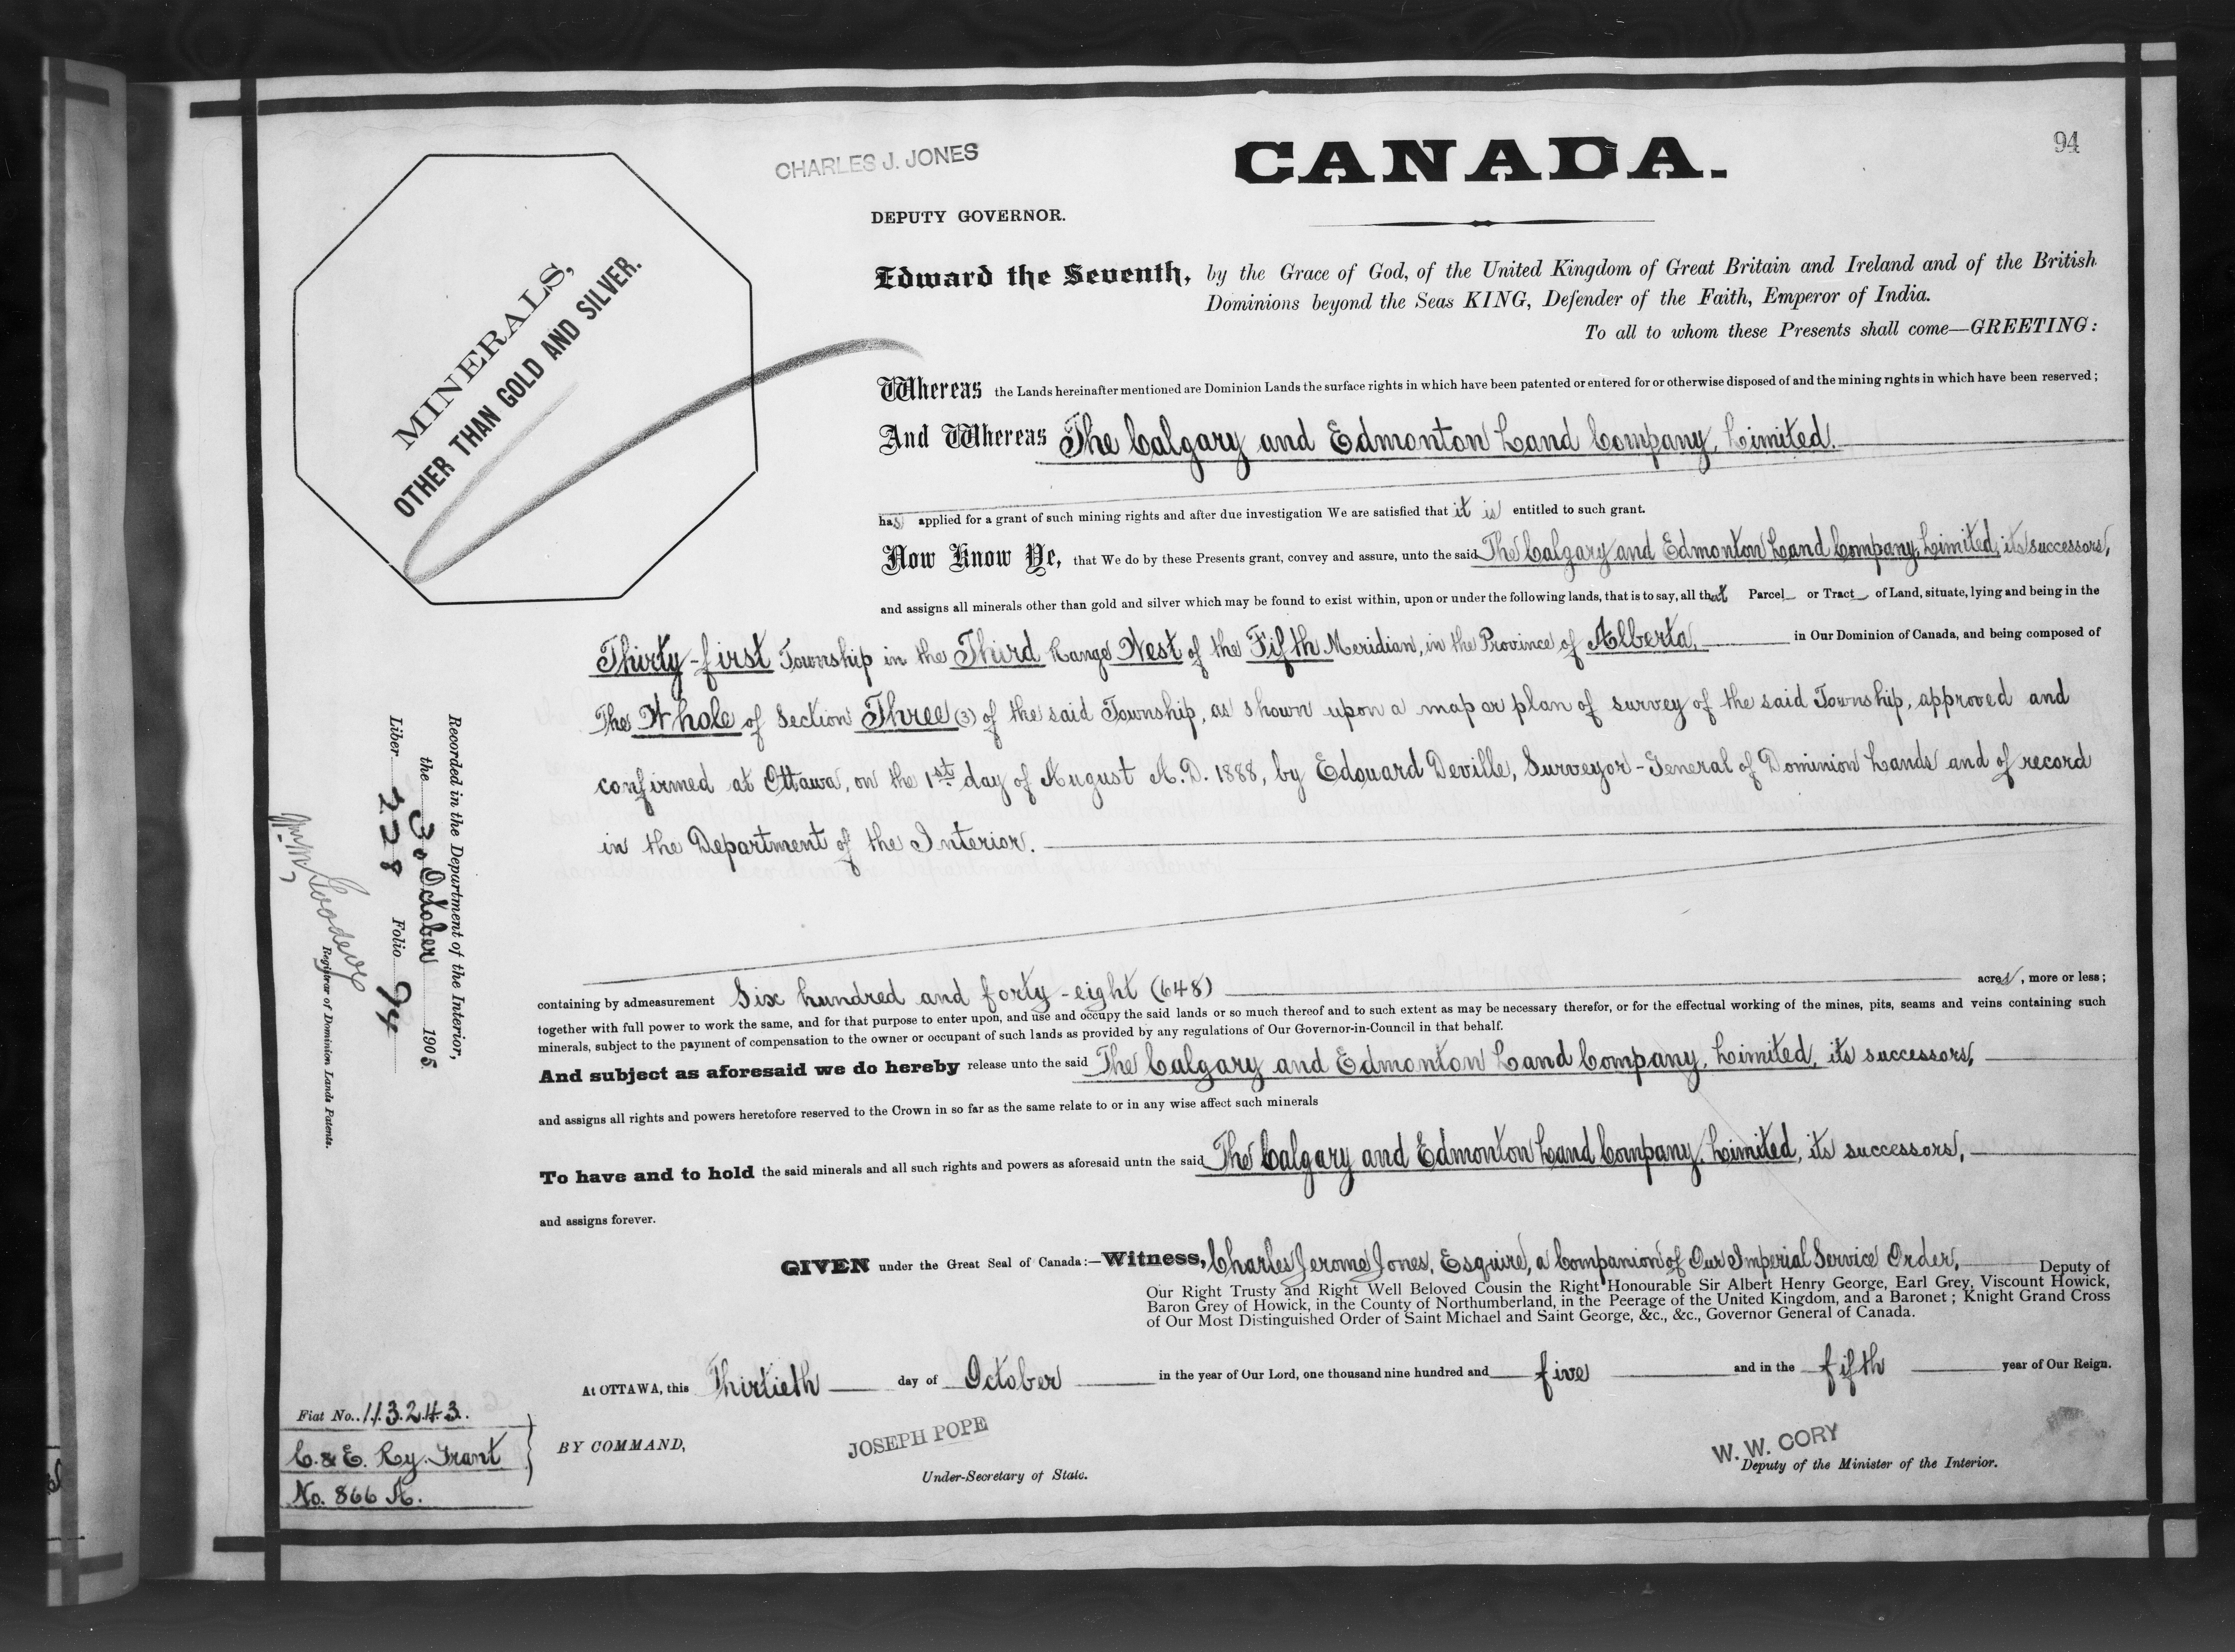 94
CHARLES J. JONES
CANADA.
DEPUTY GOVERNOR.
MINERALS,
OTHER THAN GOLD AND SILVER.
Edward the Seventh, by the Grace of God, of the United Kingdom of Great Britain and Ireland and of the British
Dominions beyond the Seas KING, Defender of the Faith, Emperor of India.
To all to whom these Presents shall come—GREETING:
Whereas the Lands hereinafter mentioned are Dominion Lands the surface rights in which have been patented or entered for or otherwise disposed of and the mining rights in which have been reserved;
And Whereas The Calgary and Edmonton Land Company, Limited.
has applied for a grant of such mining rights and after due investigation We are satisfied that it is entitled to such grant.
Now Know Ye, that We do by these Presents grant, convey and assure, unto the said The Calgary and Edmonton Land Company, Limited, its successors,
and assigns all minerals other than gold and silver which may be found to exist within, upon or under the following lands, that is to say, all that Parcel or Tract of Land, situate, lying and being in the
Thirty-first Township in the Third Range West of the Fifth Meridian, in the Province of Alberta, in Our Dominion of Canada, and being composed of
The Whole of Section Three (3) of the said Township, as shown upon a map or plan of survey of the said Township, approved and
confirmed at Ottawa, on the 1st day of August A.D. 1888, by Edouard Deville, Surveyor-General of Dominion Lands and of record
in the Department of the Interior.
containing by admeasurement Six hundred and forty-eight (648) acres, more or less;
together with full power to work the same, and for that purpose to enter upon, and use and occupy the said lands or so much thereof and to such extent as may be necessary therefor, or for the effectual working of the mines, pits, seams and veins containing such
minerals, subject to the payment of compensation to the owner or occupant of such lands as provided by any regulations of Our Governor-in-Council in that behalf.
And subject as aforesaid we do hereby release unto the said The Calgary and Edmonton Land Company, Limited, its successors,
and assigns all rights and powers heretofore reserved to the Crown in so far as the same relate to or in any wise affect such minerals
To have and to hold the said minerals and all such rights and powers as aforesaid untn the said The Calgary and Edmonton Land Company, Limited, its successors,
and assigns forever.
GIVEN under the Great Seal of Canada:—Witness, Charles Jerome Jones, Esquire, a Companion of Our Imperial Service Order, Deputy of
Our Right Trusty and Right Well Beloved Cousin the Right Honourable Sir Albert Henry George, Earl Grey, Viscount Howick,
Baron Grey of Howick, in the County of Northumberland, in the Peerage of the United Kingdom, and a Baronet; Knight Grand Cross
of Our Most Distinguished Order of Saint Michael and Saint George, &c., &c., Governor General of Canada.
At OTTAWA, this Thirtieth day of October in the year of Our Lord, one thousand nine hundred and five and in the fifth year of Our Reign.
BY COMMAND,
JOSEPH POPE
Under-Secretary of State.
W. W. CORY
Deputy of the Minister of the Interior.
Recorded in the Department of the Interior,
the 30 October 1905
Liber 228 Folio 94
Wm. M. Goodeve
Registrar of Dominion Lands Patents.
Fiat No. 113243.
C. & E. Ry. Grant
No. 866 A.